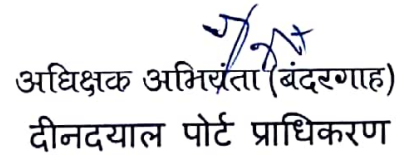 अधिक्षक अभियंता (बंदरगाह)
दीनदयाल पोर्ट प्राधिकरण